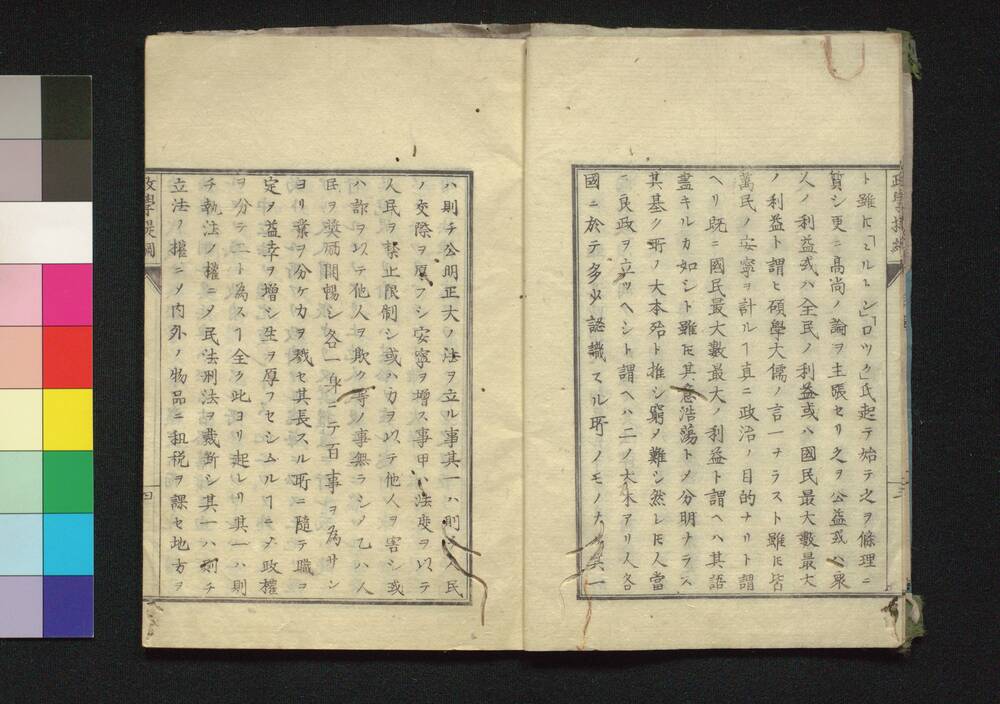 ト雖𪜈「ミルトン」「ロツク」氏起テ始テ之ヲ條理ニ
質シ更ニ高尚ノ論ヲ主張セリ之ヲ公益或ハ衆
人ノ利益或ハ全民ノ利益或ハ國民最大數最大
ノ利益ト謂ヒ碩學大儒ノ言一ナラスト雖𪜈皆
萬民ノ安寧ヲ計ルヿ真ニ政治ノ目的ナリト謂
ヘリ既ニ國民最大數最大ノ利益ト謂ヘハ其語
盡キルカ如シト雖𪜈其意浩蕩トメ分明ナラス
其基ク所ノ大本殆ト推シ窮メ難シ然レ𪜈人當
ニ良政ヲ立ツヘシト謂ヘハ二ノ大本アリ人各
國ニ於テ多少認識スル所ノモノナリ其一
ハ則チ公明正大ノ法ヲ立ル事其一ハ則チ人民
ノ交際ヲ厚フシ安寧ヲ増ス事甲ハ法度ヲ以テ
人民ヲ禁止限制シ或ハ力ヲ以テ他人ヲ害シ或
ハ詐ヲ以テ他人ヲ欺ク等ノ事無ラシメ乙ハ人
民ヲ奬励開暢シ各一身ニテ百事ヲ為サン
ヨリ業ヲ分ケ力ヲ戮セ其長スル所ニ隨テ職ヲ
定ヲ益幸ヲ増シ生ヲ厚フセシムルヿニテ政權
ヲ分テ二ト為スヿ全ク此ヨリ起レリ其一ハ則
チ執法ノ權ニメ民法刑法ヲ裁斷シ其一ハ則チ
立法ノ權ニメ内外ノ物品ニ租税ヲ課セ地方ヲ
政學提綱
四